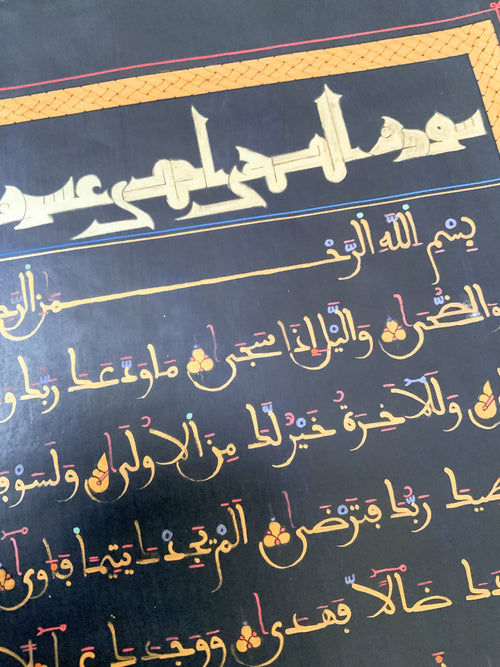 سورة الضحى إحدى عشر
بِسْمِ اللَّهِ الرَّحْمَنِ الرَّحِ
وَالضُّحَى وَاللَّيْلِ إِذَا سَجَى مَا وَدَّعَكَ رَبُّكَ وَ
وَلَلْآخِرَةُ خَيْرٌ لَكَ مِنَ الْأُولَى وَلَسَوْفَ
يُعْطِيكَ رَبُّكَ فَتَرْضَى أَلَمْ يَجِدْكَ يَتِيمًا فَآوَى
ضَالًّا فَهَدَى وَوَجَدَكَ عَائِلًا